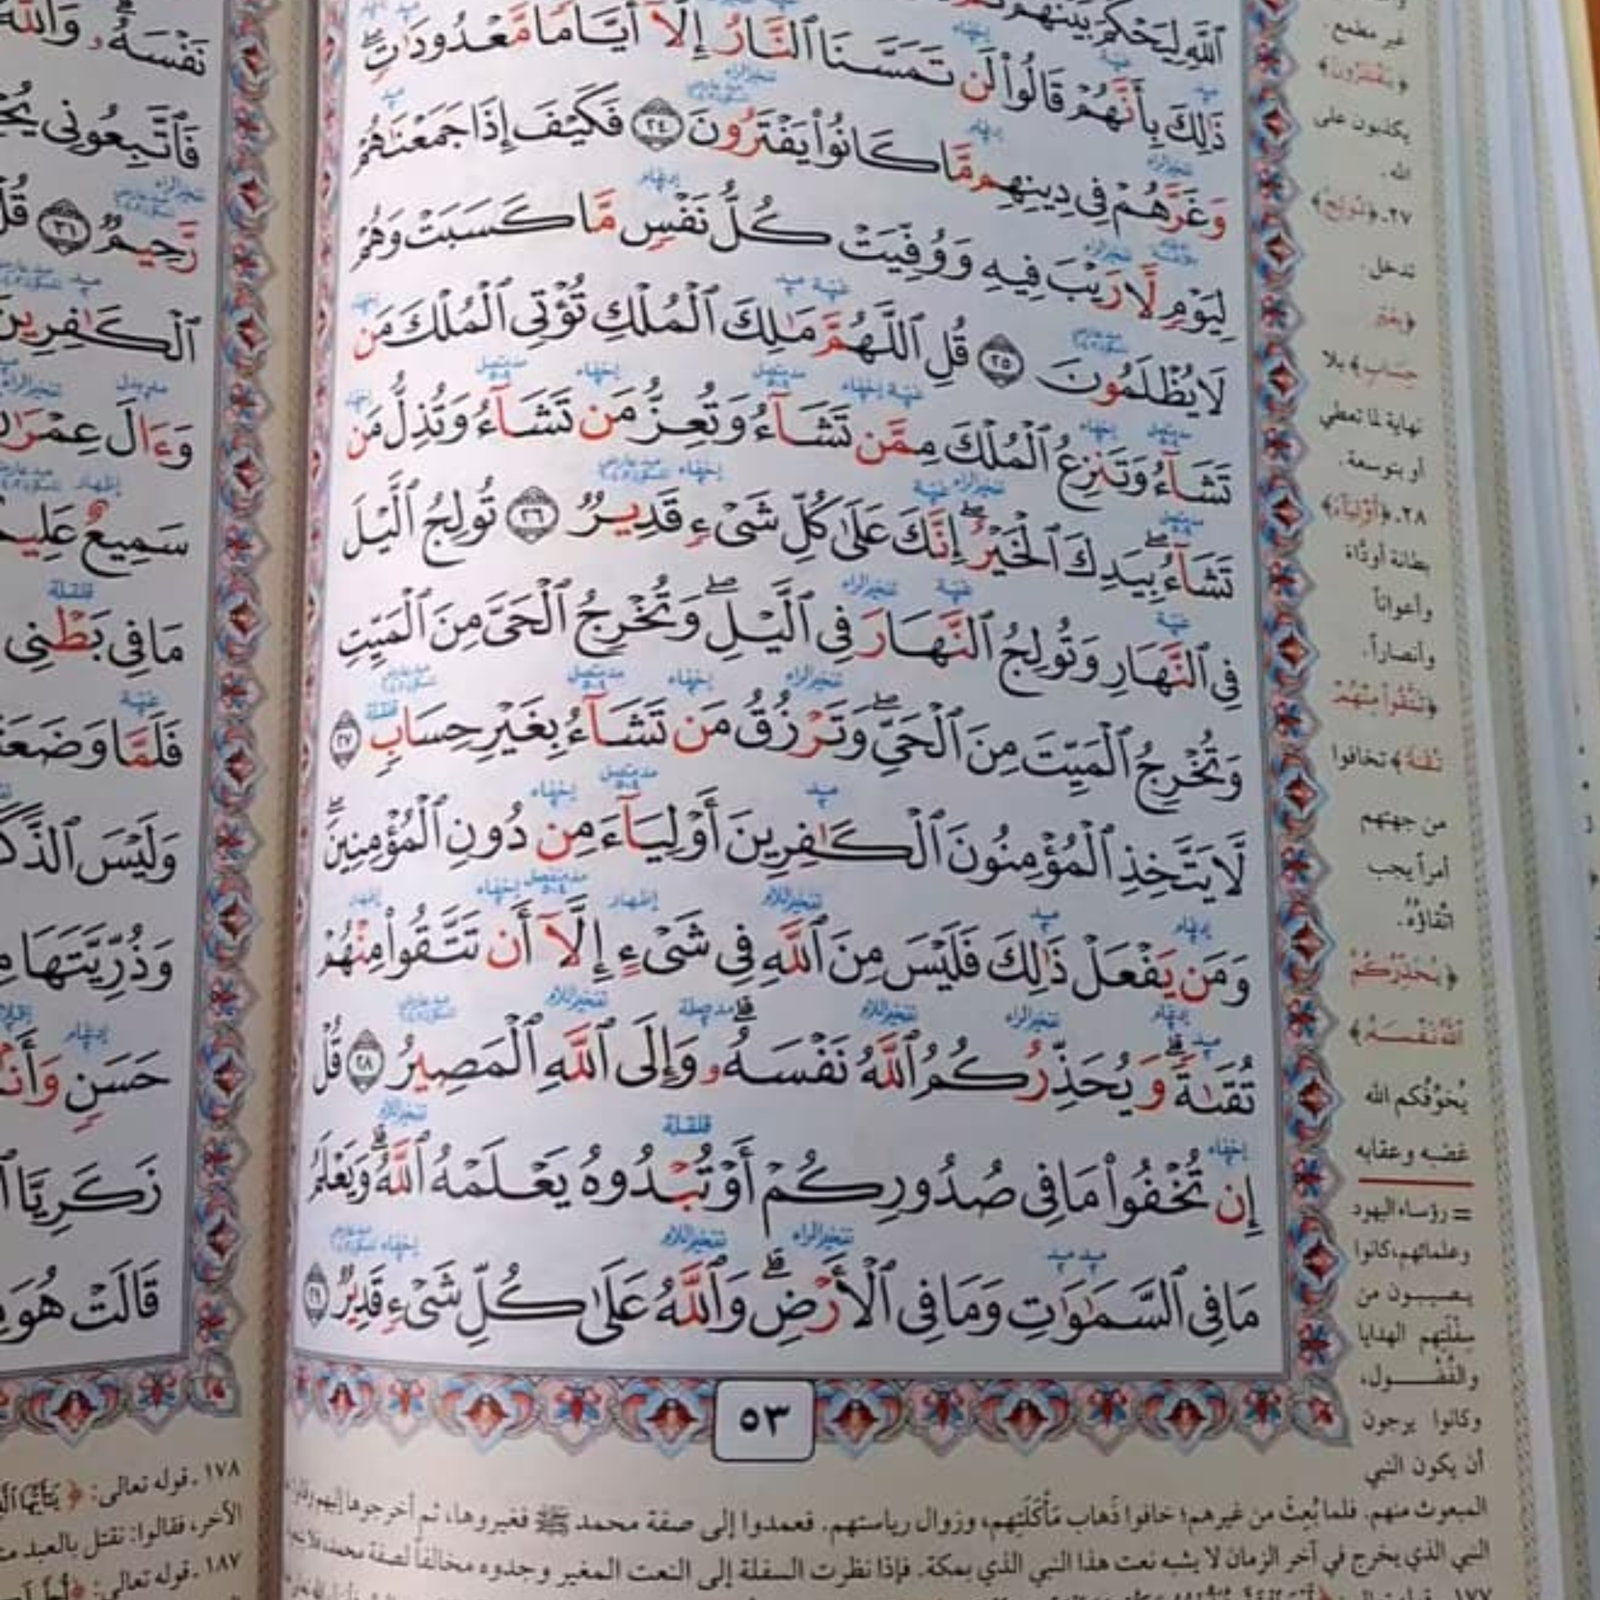 ٱللَّهِ لِيَحْكُمَ بَيْنَهُمْ
ذَٰلِكَ بِأَنَّهُمْ قَالُوا۟ لَن تَمَسَّنَا ٱلنَّارُ إِلَّآ أَيَّامًا مَّعْدُودَٰتٍ ۖ
وَغَرَّهُمْ فِى دِينِهِم مَّا كَانُوا۟ يَفْتَرُونَ ٢٤ فَكَيْفَ إِذَا جَمَعْنَٰهُمْ
لِيَوْمٍ لَّا رَيْبَ فِيهِ وَوُفِّيَتْ كُلُّ نَفْسٍ مَّا كَسَبَتْ وَهُمْ
لَا يُظْلَمُونَ ٢٥ قُلِ ٱللَّهُمَّ مَٰلِكَ ٱلْمُلْكِ تُؤْتِى ٱلْمُلْكَ مَن
تَشَآءُ وَتَنزِعُ ٱلْمُلْكَ مِمَّن تَشَآءُ وَتُعِزُّ مَن تَشَآءُ وَتُذِلُّ مَن
تَشَآءُ ۖ بِيَدِكَ ٱلْخَيْرُ ۖ إِنَّكَ عَلَىٰ كُلِّ شَىْءٍ قَدِيرٌ ٢٦ تُولِجُ ٱلَّيْلَ
فِى ٱلنَّهَارِ وَتُولِجُ ٱلنَّهَارَ فِى ٱلَّيْلِ ۖ وَتُخْرِجُ ٱلْحَىَّ مِنَ ٱلْمَيِّتِ
وَتُخْرِجُ ٱلْمَيِّتَ مِنَ ٱلْحَىِّ ۖ وَتَرْزُقُ مَن تَشَآءُ بِغَيْرِ حِسَابٍ ٢٧
لَّا يَتَّخِذِ ٱلْمُؤْمِنُونَ ٱلْكَٰفِرِينَ أَوْلِيَآءَ مِن دُونِ ٱلْمُؤْمِنِينَ ۖ
وَمَن يَفْعَلْ ذَٰلِكَ فَلَيْسَ مِنَ ٱللَّهِ فِى شَىْءٍ إِلَّآ أَن تَتَّقُوا۟ مِنْهُمْ
تُقَىٰةً ۗ وَيُحَذِّرُكُمُ ٱللَّهُ نَفْسَهُۥ ۗ وَإِلَى ٱللَّهِ ٱلْمَصِيرُ ٢٨ قُلْ
إِن تُخْفُوا۟ مَا فِى صُدُورِكُمْ أَوْ تُبْدُوهُ يَعْلَمْهُ ٱللَّهُ ۗ وَيَعْلَمُ
مَا فِى ٱلسَّمَٰوَٰتِ وَمَا فِى ٱلْأَرْضِ ۗ وَٱللَّهُ عَلَىٰ كُلِّ شَىْءٍ قَدِيرٌ ٢٩
٥٣
غير مطمع.
﴿يَفْتَرُونَ﴾
يكذبون على
الله.
٢٧. ﴿تُولِجُ﴾
تدخل.
﴿بِغَيْرِ
حِسَابٍ﴾ بلا
نهاية لما تعطي
أو بتوسعة.
٢٨. ﴿أَوْلِيَآءَ﴾
بطانة أودّاء
وأعواناً
وأنصاراً.
﴿تَتَّقُوا۟ مِنْهُمْ
تُقَىٰةً﴾ تخافوا
من جهتهم
أمراً يجب
اتّقاؤه.
﴿يُحَذِّرُكُمُ
ٱللَّهُ نَفْسَهُ﴾
يُخوّفُكم الله
غضبه وعقابه
= رؤساء اليهود
وعلمائهم، كانوا
يصيبون من
سفلتهم الهدايا
والفُضُول،
وكانوا يرجون
أن يكون النبي
المبعوث منهم. فلما بُعِثَ من غيرهم؛ خافوا ذَهاب مَأْكَلَتِهم، وزوال رياستهم. فعمدوا إلى صفة محمد ﷺ فغيروها، ثم أخرجوها إليهم
النبي الذي يخرج في آخر الزمان لا يشبه نعت هذا النبي الذي بمكة. فإذا نظرت السفلة إلى النعت المغير وجدوه مخالفاً لصفة محمد
نَفْسَهُۥ ۗ وَٱللَّهُ
فَٱتَّبِعُونِى
رَّحِيمٌ ٣١
ٱلْكَٰفِرِينَ
وَءَالَ عِمْرَٰنَ
سَمِيعٌ عَلِيمٌ
مَا فِى بَطْنِى
فَلَمَّا وَضَعَتْ
وَلَيْسَ ٱلذَّكَرُ
وَذُرِّيَّتَهَا
حَسَنٍ
زَكَرِيَّا
قَالَتْ هُوَ
١٧٨. قوله تعالى:
الآخر، فقالوا: نقتل بالعبد
١٨٧. قوله تعالى: